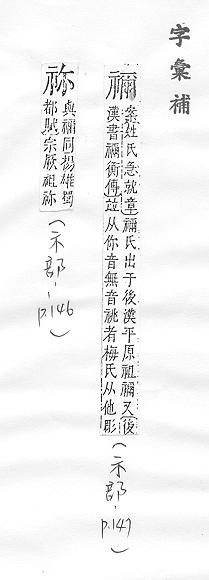 字彙補
禰
姓氏急就章禰氏出于後漢平原祖禰又後
漢書禰衡傳竝从你音無音祧者梅氏从他彫
(示部, p.147)
祢
與禰同揚雄蜀
都賦宗厥祖祢
(示部, p.146)